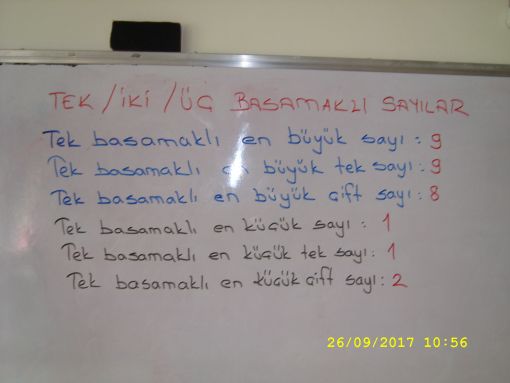 TEK / İKİ / ÜÇ BASAMAKLI SAYILAR
Tek basamaklı en büyük sayı : 9
Tek basamaklı en büyük tek sayı : 9
Tek basamaklı en büyük çift sayı : 8
Tek basamaklı en küçük sayı : 1
Tek basamaklı en küçük tek sayı : 1
Tek basamaklı en küçük çift sayı : 2
26/09/2017 10:56